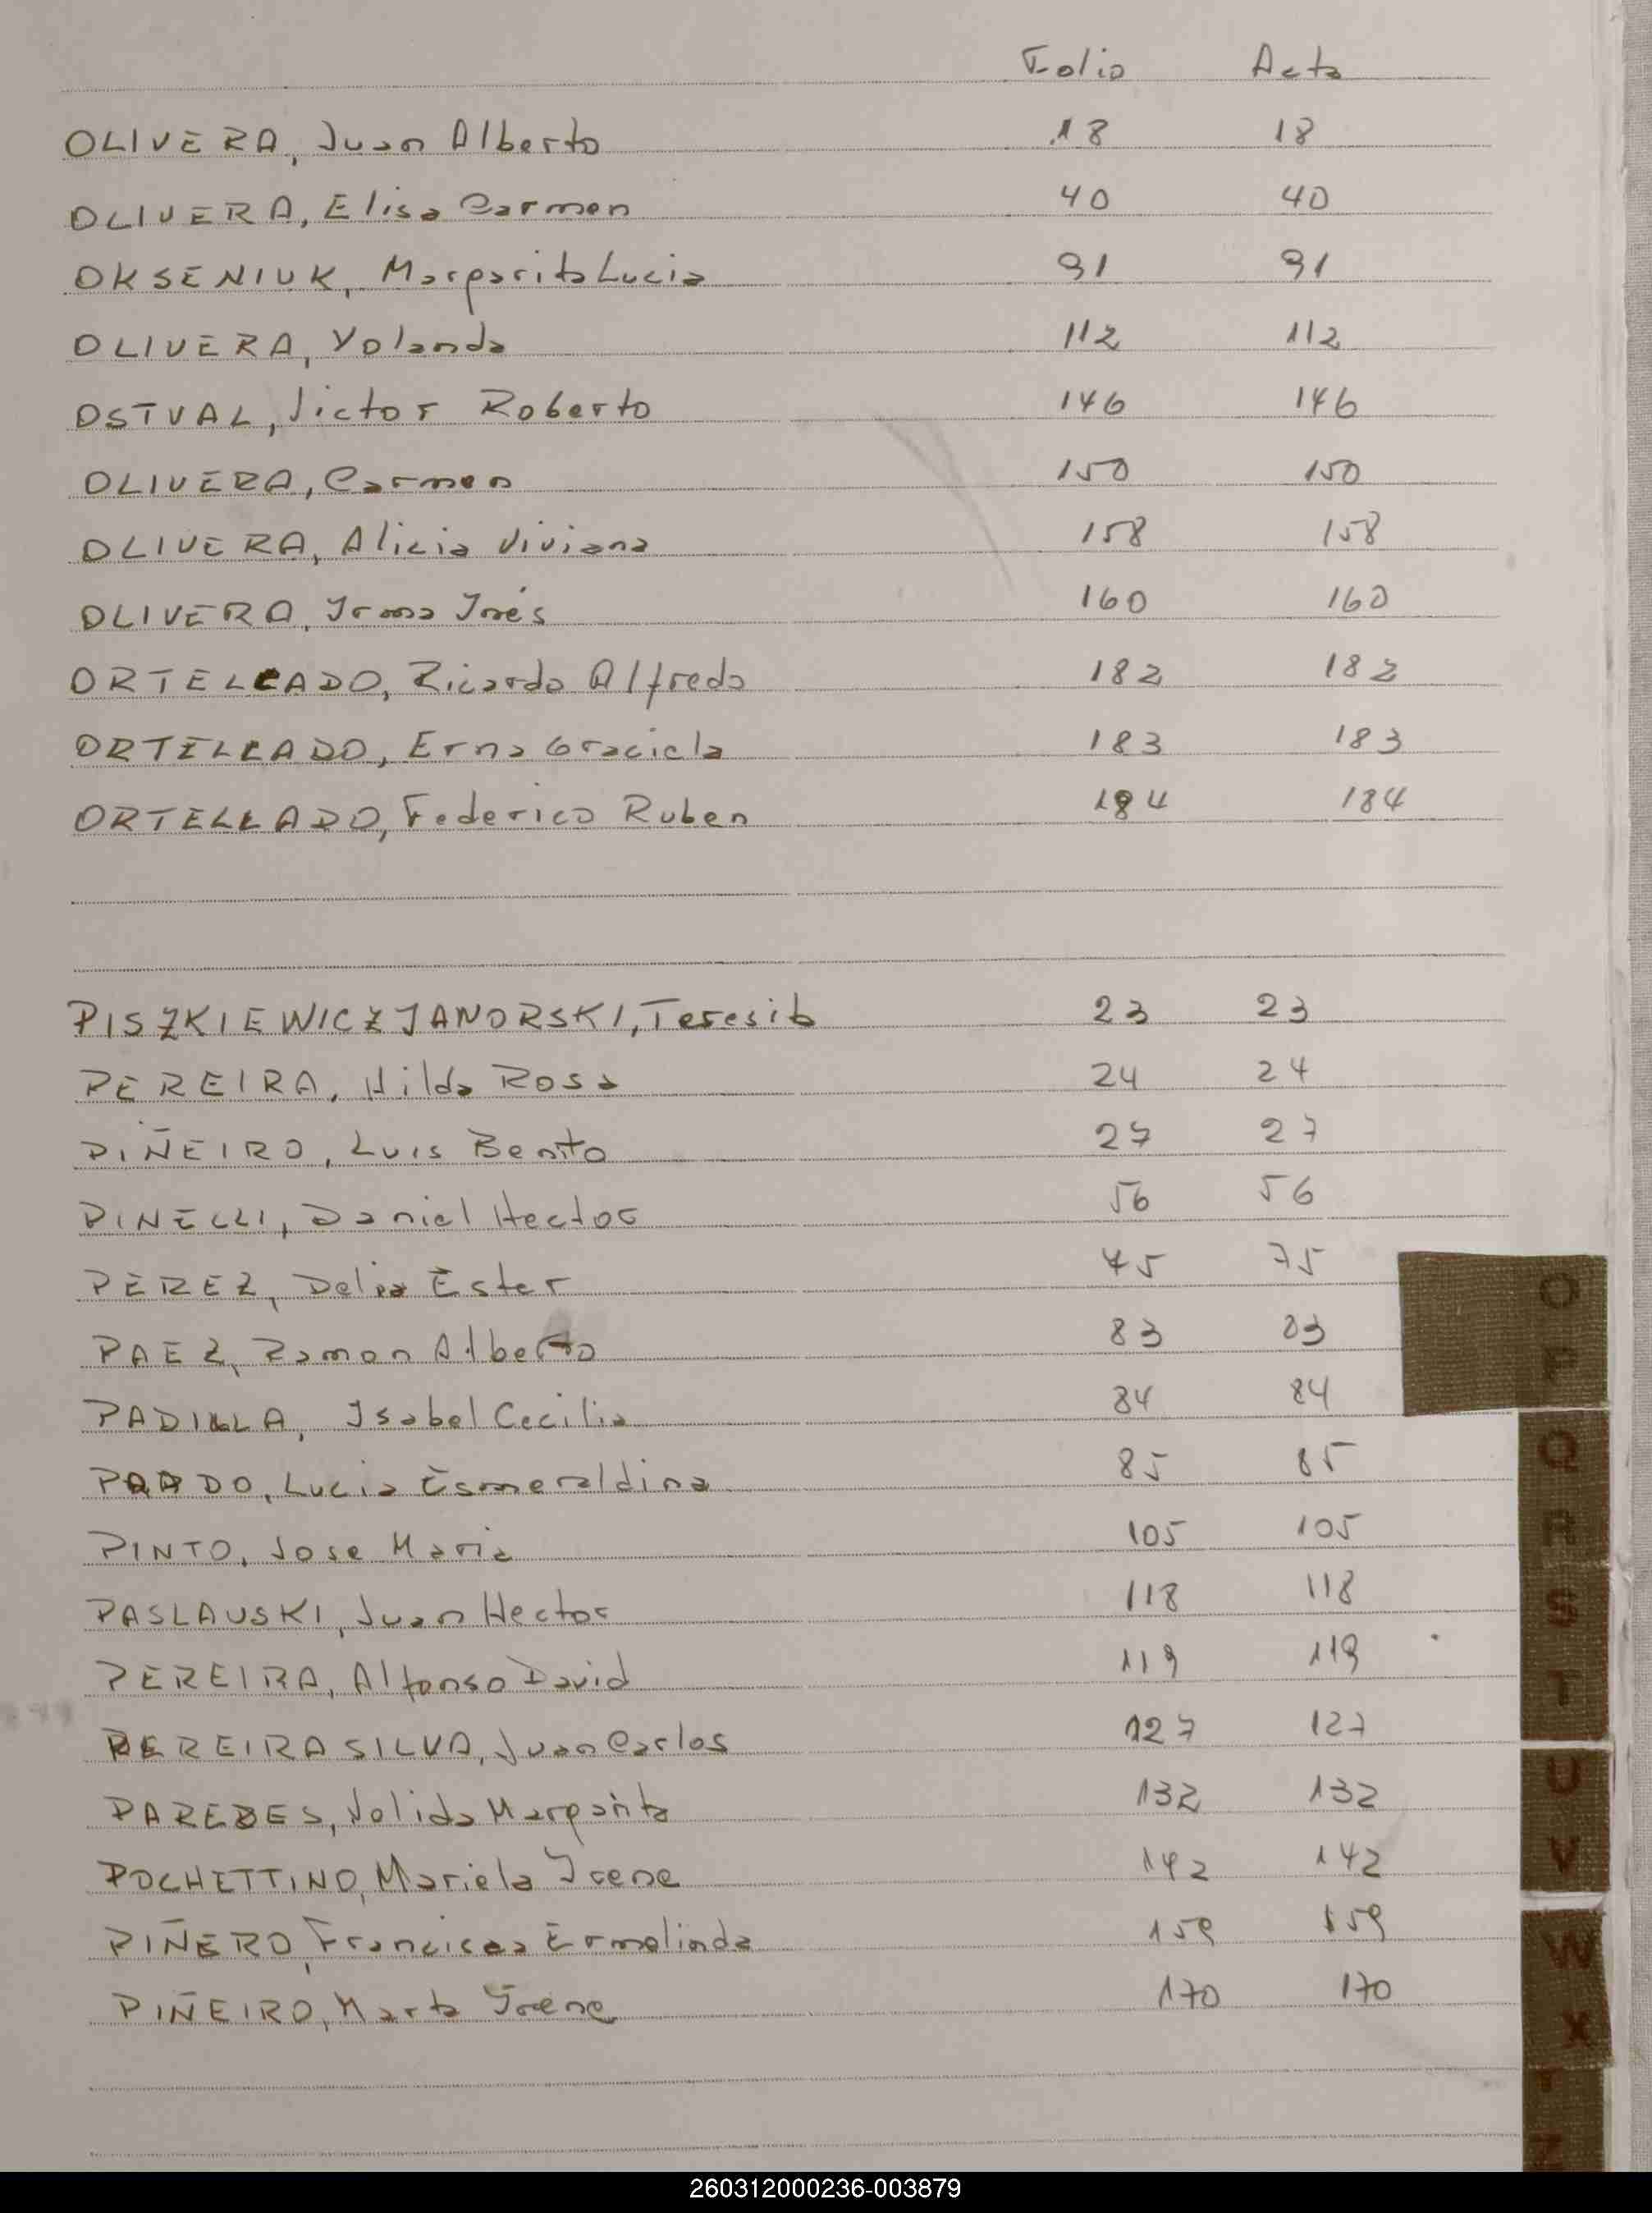 Folio Acta
OLIVERA, Juan Alberto 18 18
OLIVERA, Elisa Carmen 40 40
OKSENIUK, Margarita Lucia 91 91
OLIVERA, Yolanda 112 112
OSTVAL, Victor Roberto 146 146
OLIVERA, Carmen 150 150
OLIVERA, Alicia Viviana 158 158
OLIVERA, Irma Inés 160 160
ORTELLADO, Ricardo Alfredo 182 182
ORTELLADO, Erna Graciela 183 183
ORTELLADO, Federico Ruben 184 184
PISZKIEWICZ JANORSKI, Teresita 23 23
PEREIRA, Hilda Rosa 24 24
PIÑEIRO, Luis Benito 27 27
PINELLI, Daniel Hector 56 56
PEREZ, Delia Ester 75 75
O
P
PAEZ, Ramon Alberto 83 83
PADILLA, Isabel Cecilia 84 84
PRADO, Lucia Esmeraldina 85 85
Q
R
PINTO, Jose Maria 105 105
PASLAUSKI, Juan Hector 118 118
S
PEREIRA, Alfonso David 119 119
T
PEREIRA SILVA, Juan Carlos 127 127
U
PAREDES, Nelida Margarita 132 132
V
POCHETTINO, Mariela Irene 142 142
PIÑERO, Francisca Ermelinda 159 159
W
PIÑEIRO, Marta Irene 170 170
X
Y
Z
260312000236-003879